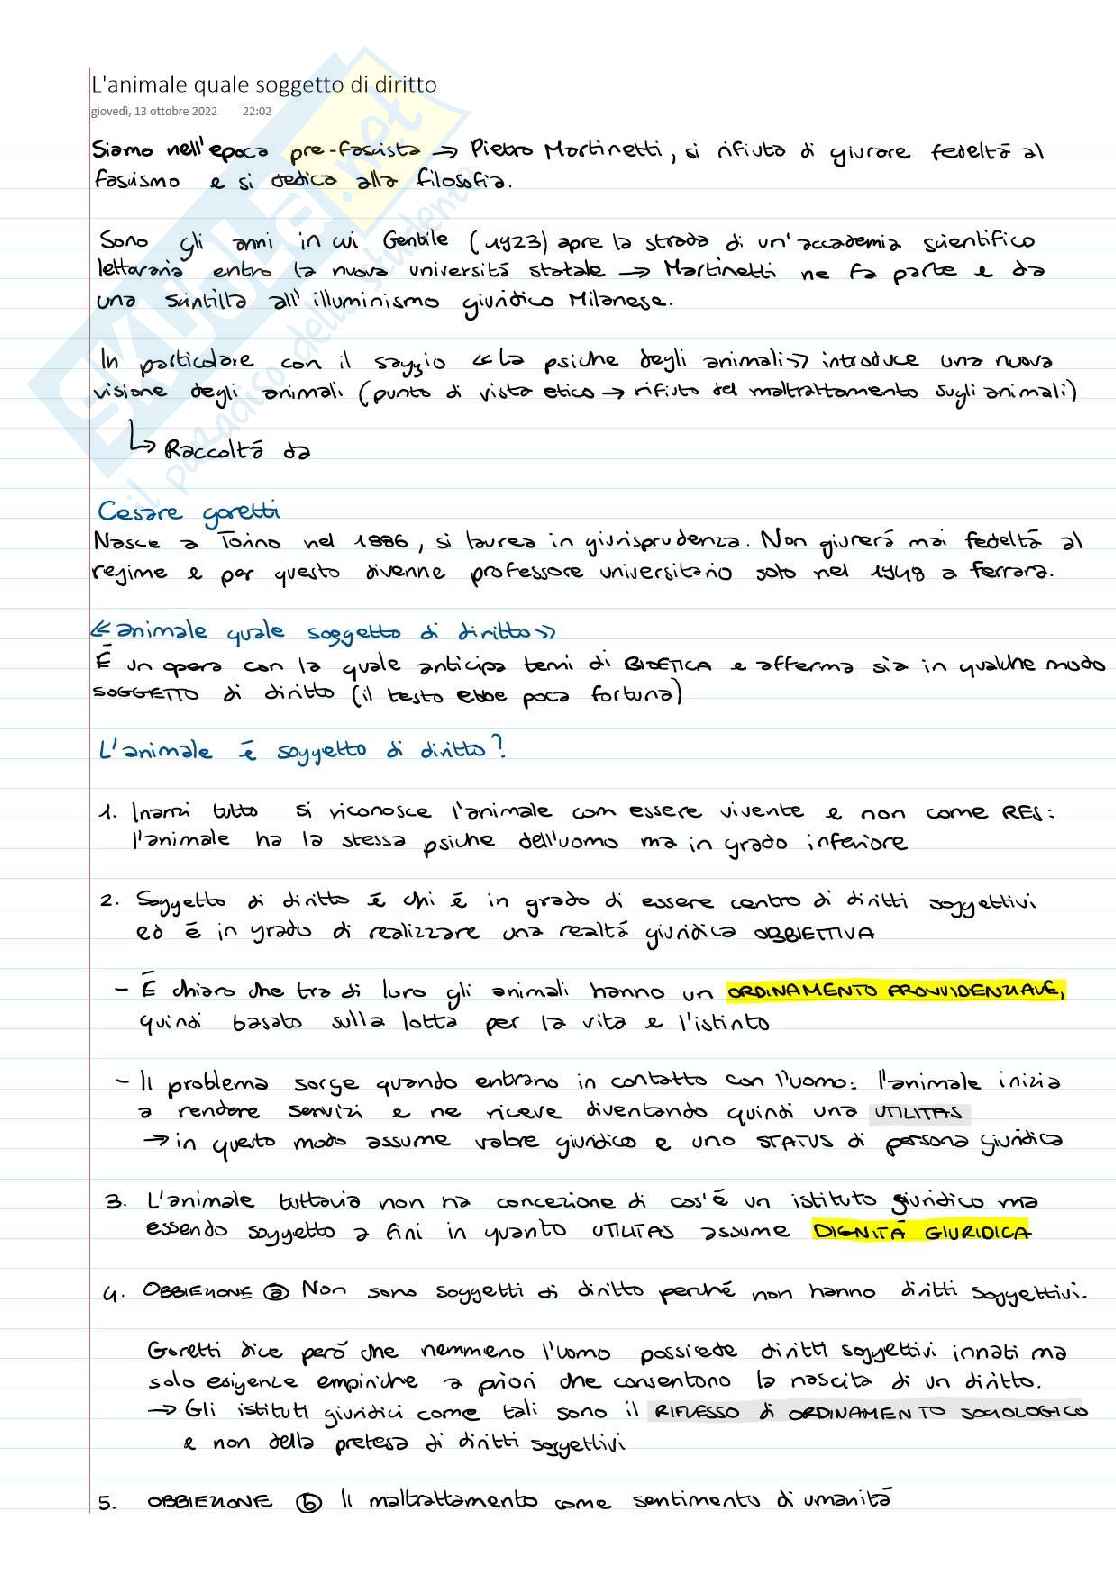 L'animale quale soggetto di diritto
giovedì, 13 ottobre 2022 22:02
Siamo nell'epoca pre-fascista → Pietro Martinetti, si rifiuta di giurare fedeltà al
fascismo e si dedica alla filosofia.
Sono gli anni in cui Gentile (1923) apre la strada di un'accademia scientifico
letteraria entro la nuova università statale → Martinetti ne fa parte e da
una scintilla all'illuminismo giuridico Milanese.
In particolare con il saggio «La psiche degli animali» introduce una nuova
visione degli animali (punto di vista etico → rifiuto del maltrattamento sugli animali)
↳ Raccolta da
Cesare goretti
Nasce a Torino nel 1886, si laurea in giurisprudenza. Non giurerà mai fedeltà al
regime e per questo divenne professore universitario solo nel 1948 a Ferrara.
«animale quale soggetto di diritto»
È un opera con la quale anticipa temi di BIOETICA e afferma sia in qualche modo
SOGGETTO di diritto (il testo ebbe poca fortuna)
L'animale è soggetto di diritto?
1. Inanzi tutto si riconosce l'animale com essere vivente e non come RES:
l'animale ha la stessa psiche dell'uomo ma in grado inferiore
2. Soggetto di diritto è chi è in grado di essere centro di diritti soggettivi
ed è in grado di realizzare una realtà giuridica OBBIETTIVA
- È chiaro che tra di loro gli animali hanno un ORDINAMENTO PROVVIDENZIALE,
quindi basato sulla lotta per la vita e l'istinto
- Il problema sorge quando entrano in contatto con l'uomo: l'animale inizia
a rendere servizi e ne riceve diventando quindi una UTILITAS
→ in questo modo assume valore giuridico e uno STATUS di persona giuridica
3. L'animale tuttavia non ha concezione di cos'è un istituto giuridico ma
essendo soggetto a fini in quanto UTILITAS assume DIGNITÀ GIURIDICA
4. OBBIEZIONE ⓐ Non sono soggetti di diritto perché non hanno diritti soggettivi.
Goretti dice però che nemmeno l'uomo possiede diritti soggettivi innati ma
solo esigenze empiriche a priori che consentono la nascita di un diritto.
→ Gli istituti giuridici come tali sono il RIFLESSO di ORDINAMENTO SOCIOLOGICO
e non della pretesa di diritti soggettivi
5. OBBIEZIONE ⓑ Il maltrattamento come sentimento di umanità
SKUOLA.net
il paradiso dello studente